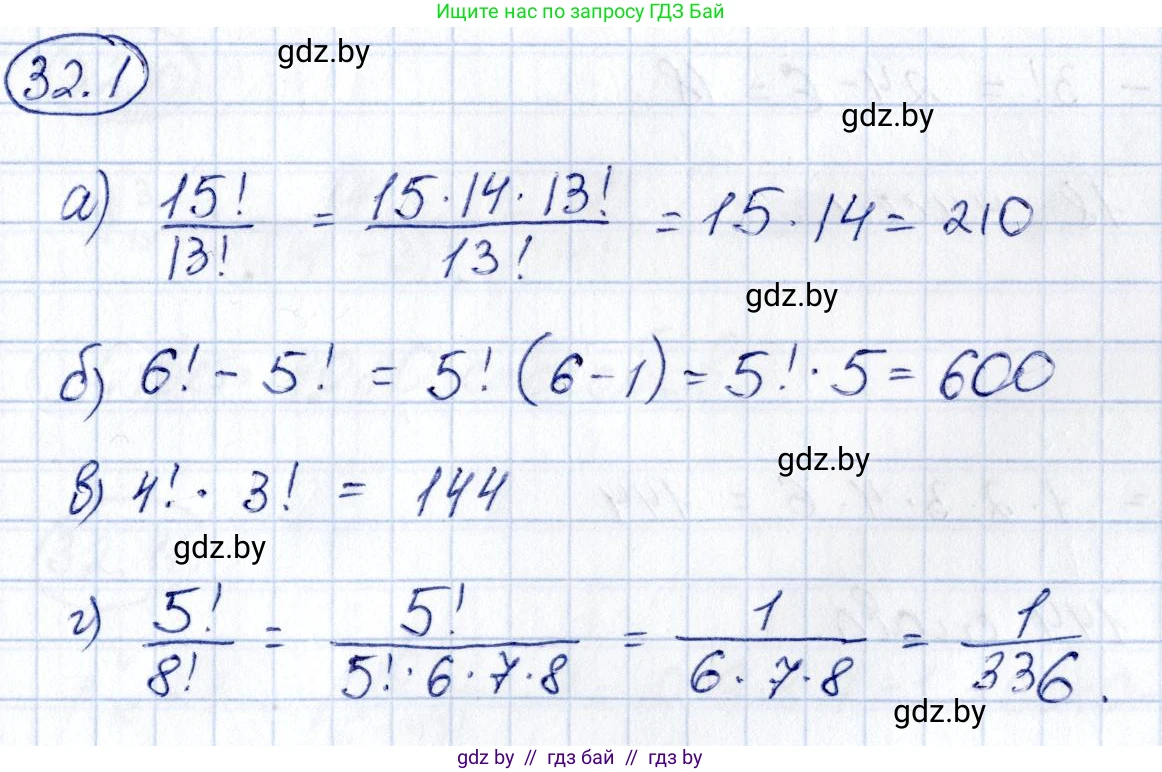 Ищите нас по запросу ГДЗ Бай
32.1
gdz.by
gdz.by
а) 15!/13! = 15·14·13!/13! = 15·14 = 210
gdz.by
б) 6! - 5! = 5! (6-1) = 5! · 5 = 600
gdz.by
в) 4! · 3! = 144
gdz.by
г) 5!/8! = 5!/5!·6·7·8 = 1/6·7·8 = 1/336.
gdz.by
gdz by // гдз бай // гдз by